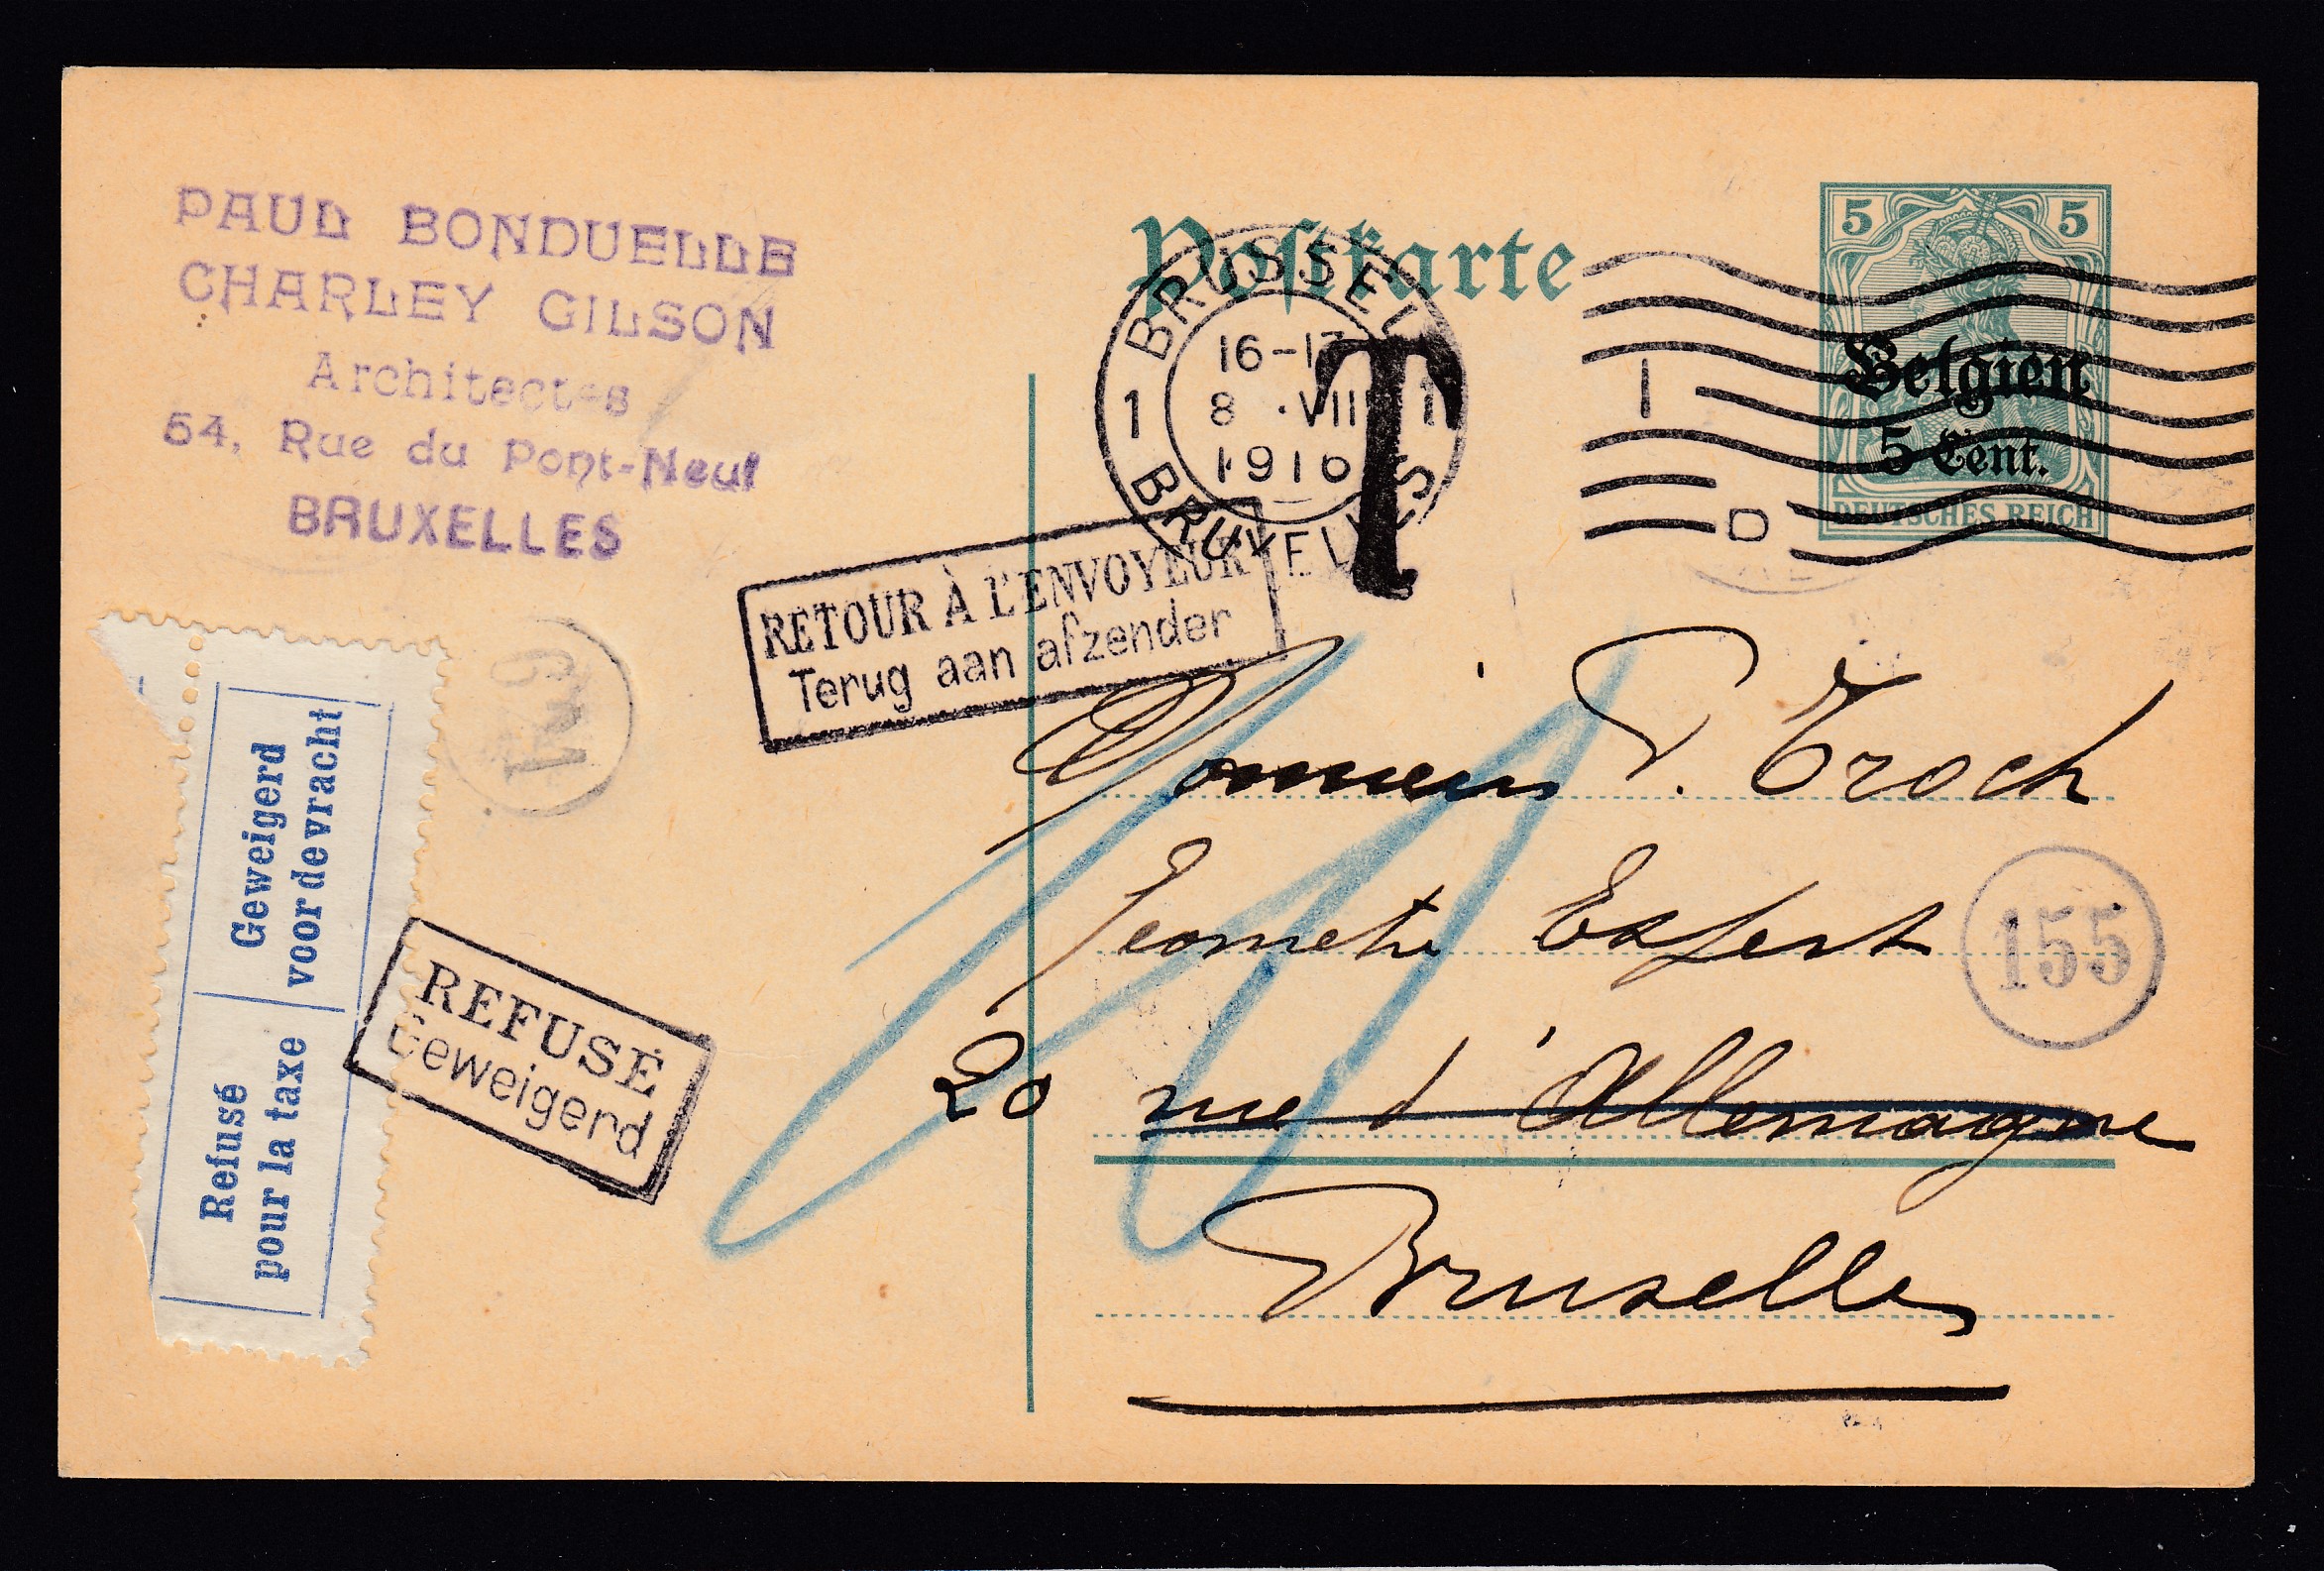 PAUL BONDUELLE
CHARLEY GILSON
Architectes
54, Rue du Pont-Neuf
BRUXELLES
Postkarte
5 5
Belgien
5 Cent.
DEUTSCHES REICH
BRUSSEL
16-17
1 8 .VIII 1
1916
BRUXELLES
T
1
D
RETOUR À L'ENVOYEUR
Terug aan afzender
Geweigerd
voor de vracht
Refusé
pour la taxe
REFUSÉ
Geweigerd
Monsieur P. Troch
Geometre Expert
155
20 rue d'Allemagne
Bruxelles